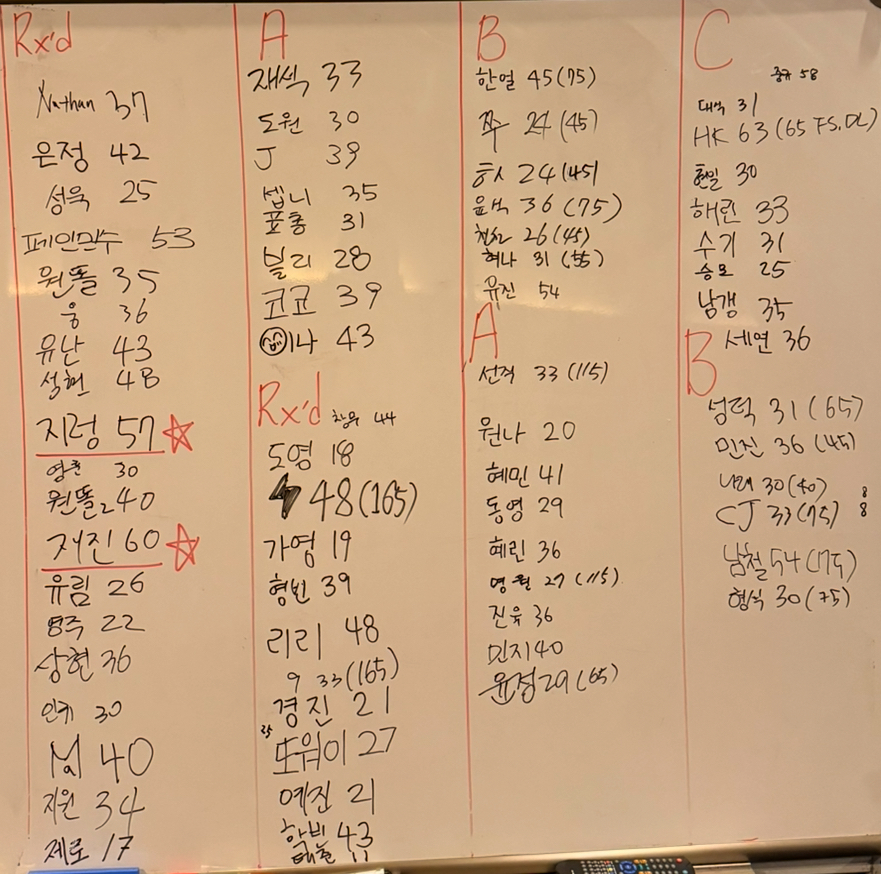 Rx'd
Nathan 37
은정 42
성욱 25
페인민수 53
원똘 35
웅 36
유난 43
석현 48
지령 57
영춘 30
원똘2 40
재진 60
유림 26
명주 22
상현 36
인키 30
40
지원 34
제로 17
A
재석 33
도원 30
J 39
셉니 35
표홍 31
블리 28
코코 39
나 43
Rx'd
창욱 44
도영 18
48 (165)
가영 19
형빈 39
리리 48
9 33 (165)
경진 21
또워이 27
예진 21
학빈 43
11
B
한얼 45 (75)
쭈 24 (45)
24 (45)
윤석 36 (75)
26 (45)
혀나 31 (55)
유진 54
A
선적 33 (115)
원나 20
혜민 41
동영 29
혜린 36
영월 27 (115)
진유 36
민지 40
윤정 29 (65)
C
58
대억 31
HK 63 (65 FS.DL)
현일 30
해린 33
수기 31
승모 25
남갱 35
세연 36
B
성덕 31 (65)
민진 36 (45)
나래 30 (40)
CJ 33 (75)
8
8
남철 54 (75)
형식 30 (75)